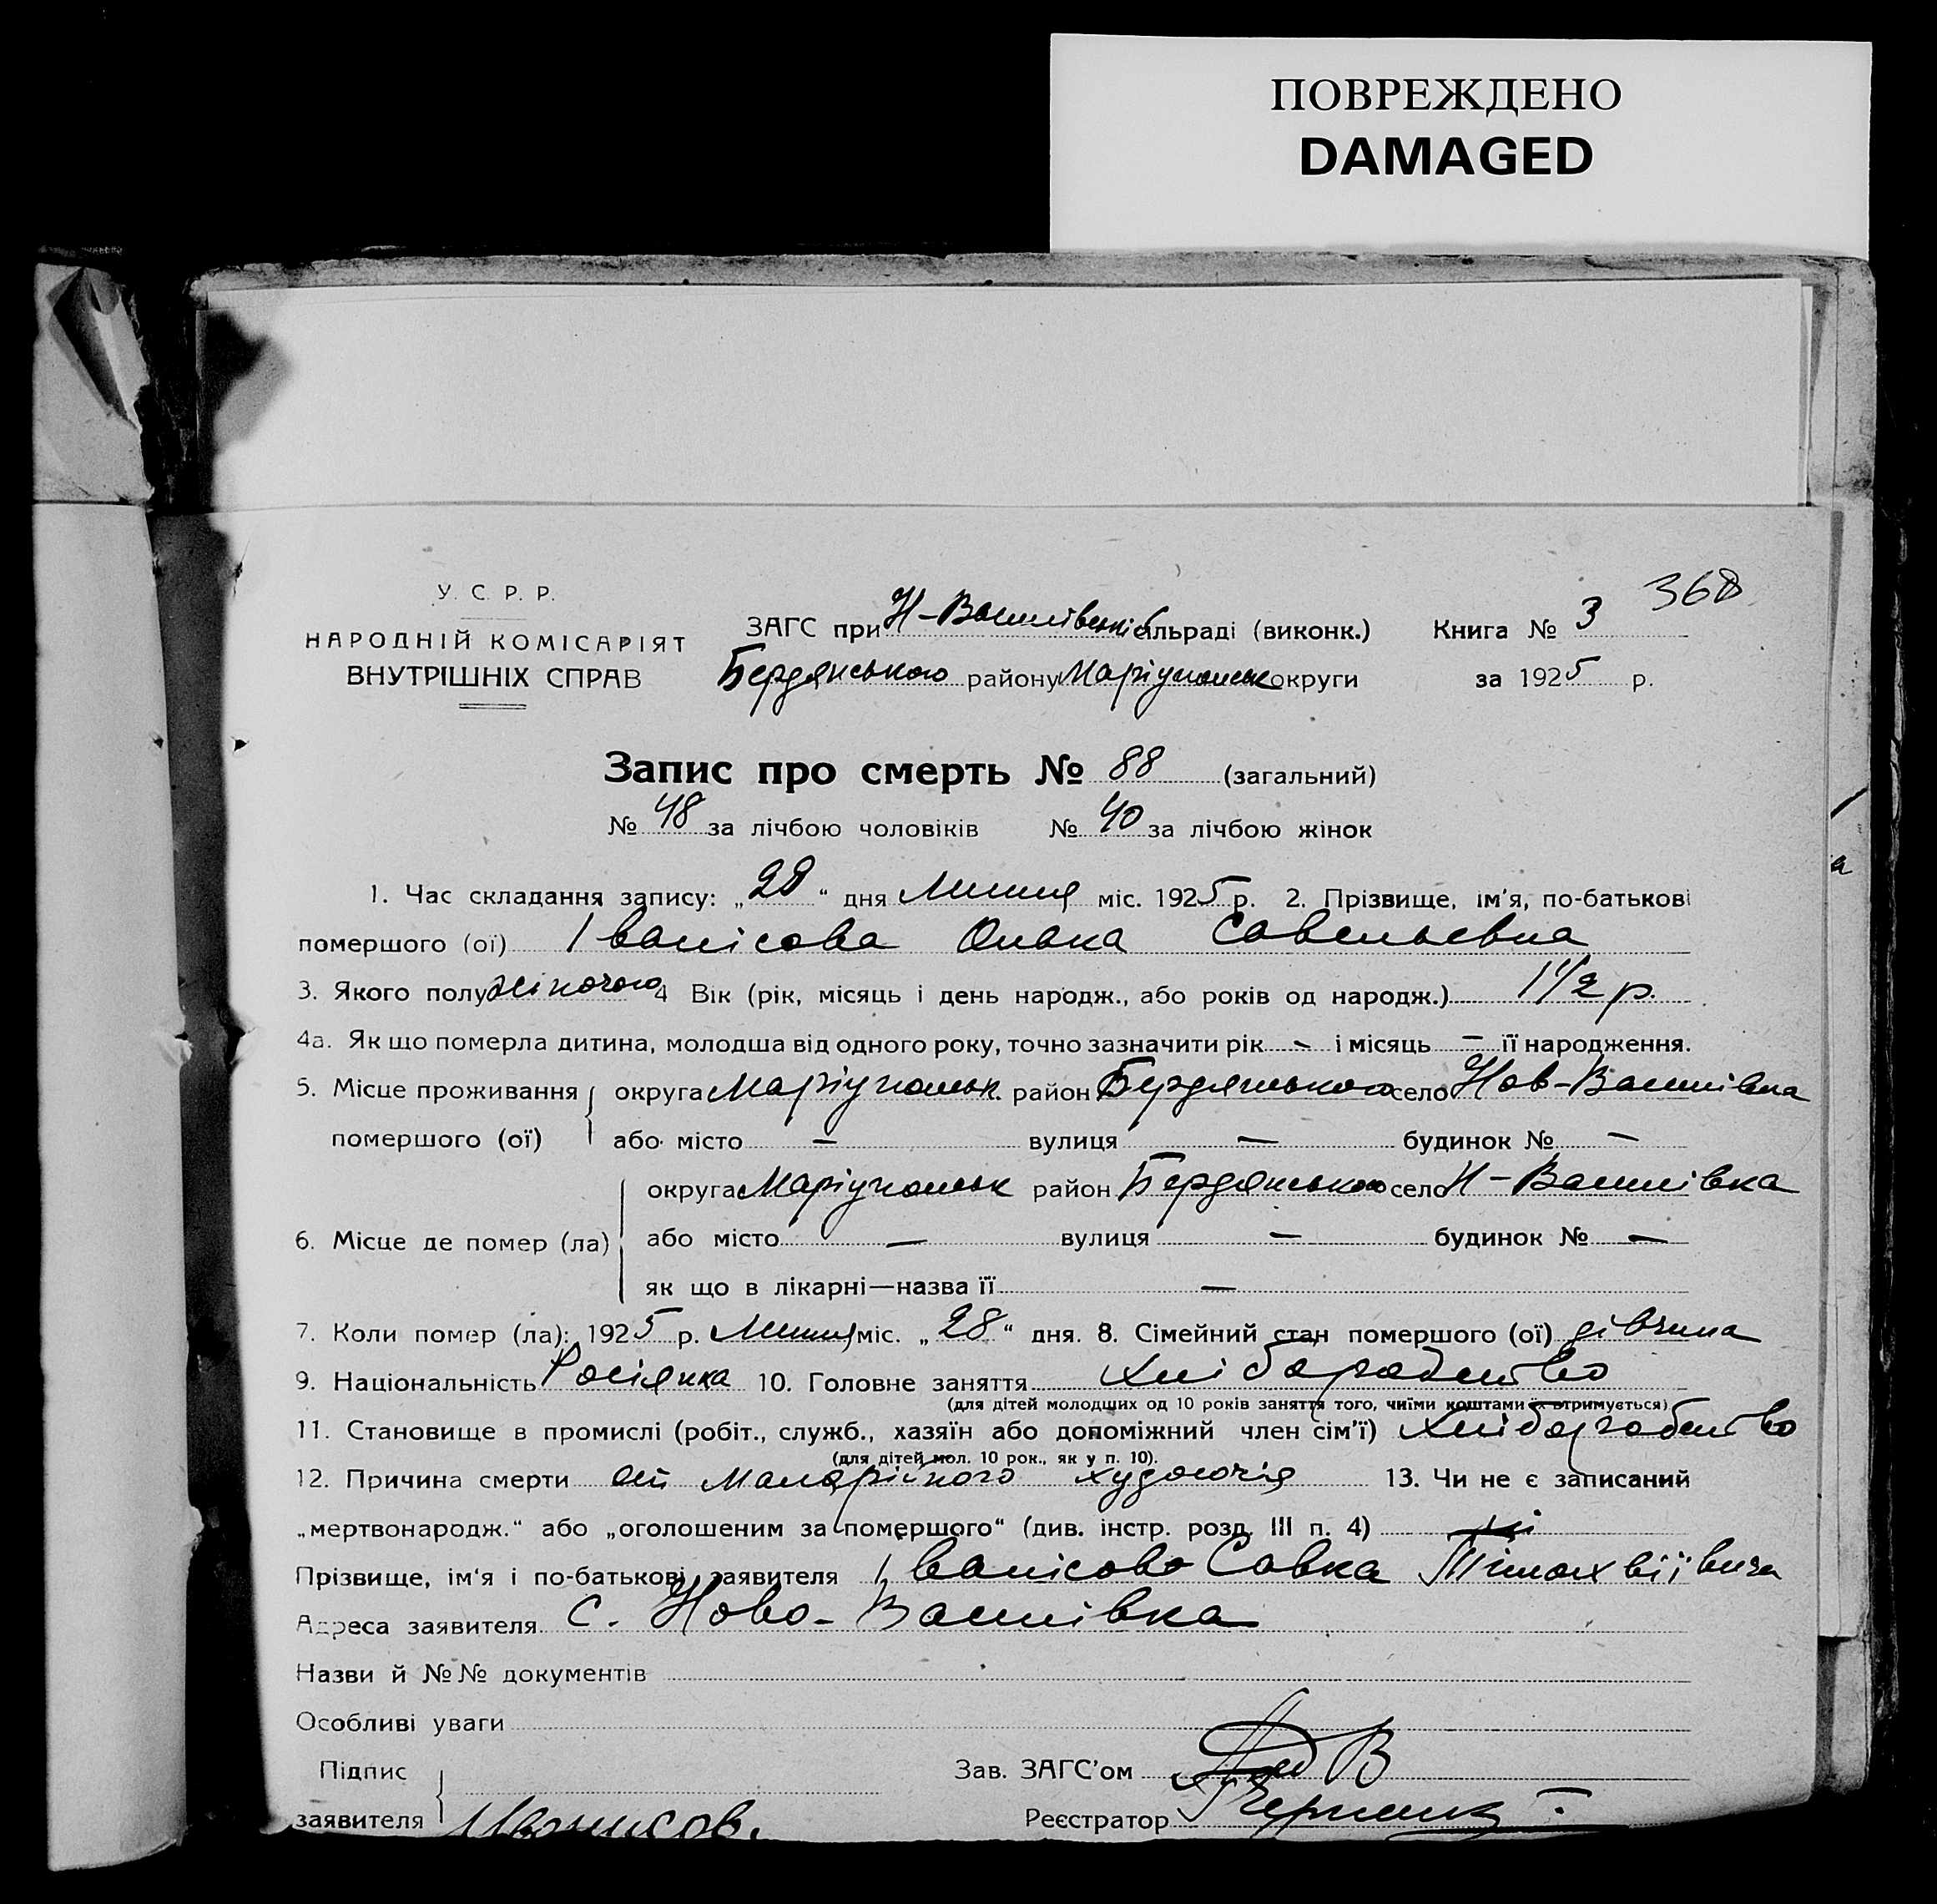 ПОВРЕЖДЕНО
DAMAGED
У. С. Р. Р.
НАРОДНІЙ КОМІСАРІЯТ
ВНУТРІШНІХ СПРАВ
ЗАГС при Н-Василівській сільраді (виконк.) Книга № 3 368
Бердянського району Маріупольськ округи за 1925 р.
Запис про смерть № 88 (загальний)
№ 48 за лічбою чоловіків № 40 за лічбою жінок
1. Час складання запису: „28“ дня Липня міс. 1925 р. 2. Прізвище, ім'я, по-батькові
помершого (ої) Іванісова Савельевна
3. Якого полу жіночого 4 Вік (рік, місяць і день народж., або років од народж.) 1 1/2 р.
4а. Як що померла дитина, молодша від одного року, точно зазначити рік - і місяць - її народження.
5. Місце проживання округа Маріупольськ. район Бердянського село Нов-Василівка
помершого (ої) або місто - вулиця - будинок № -
округа Маріупольськ район Бердянського село Н-Василівка
6. Місце де помер (ла) або місто - вулиця - будинок № -
як що в лікарні—назва її -
7. Коли помер (ла): 1925 р. Липня міс. „28“ дня. 8. Сімейний стан помершого (ої) дівчина
9. Національність Росіянка 10. Головне заняття Хліборобство
(для дітей молодших од 10 років заняття того, чиїми коштами їх втримується)
11. Становище в промислі (робіт., служб., хазяїн або допоміжний член сім'ї) Хліборобство
(для дітей мол. 10 рок., як у п. 10).
12. Причина смерти от Малярійного худосочія 13. Чи не є записаний
„мертвонародж.“ або „оголошеним за помершого“ (див. інстр. розд. III п. 4) ні
Прізвище, ім'я і по-батькові заявителя Іванісова Савка
Адреса заявителя с. Ново-Василівка
Назви й №№ документів
Особливі уваги
Підпис Зав. ЗАГС'ом
заявителя Иванисов. Реєстратор